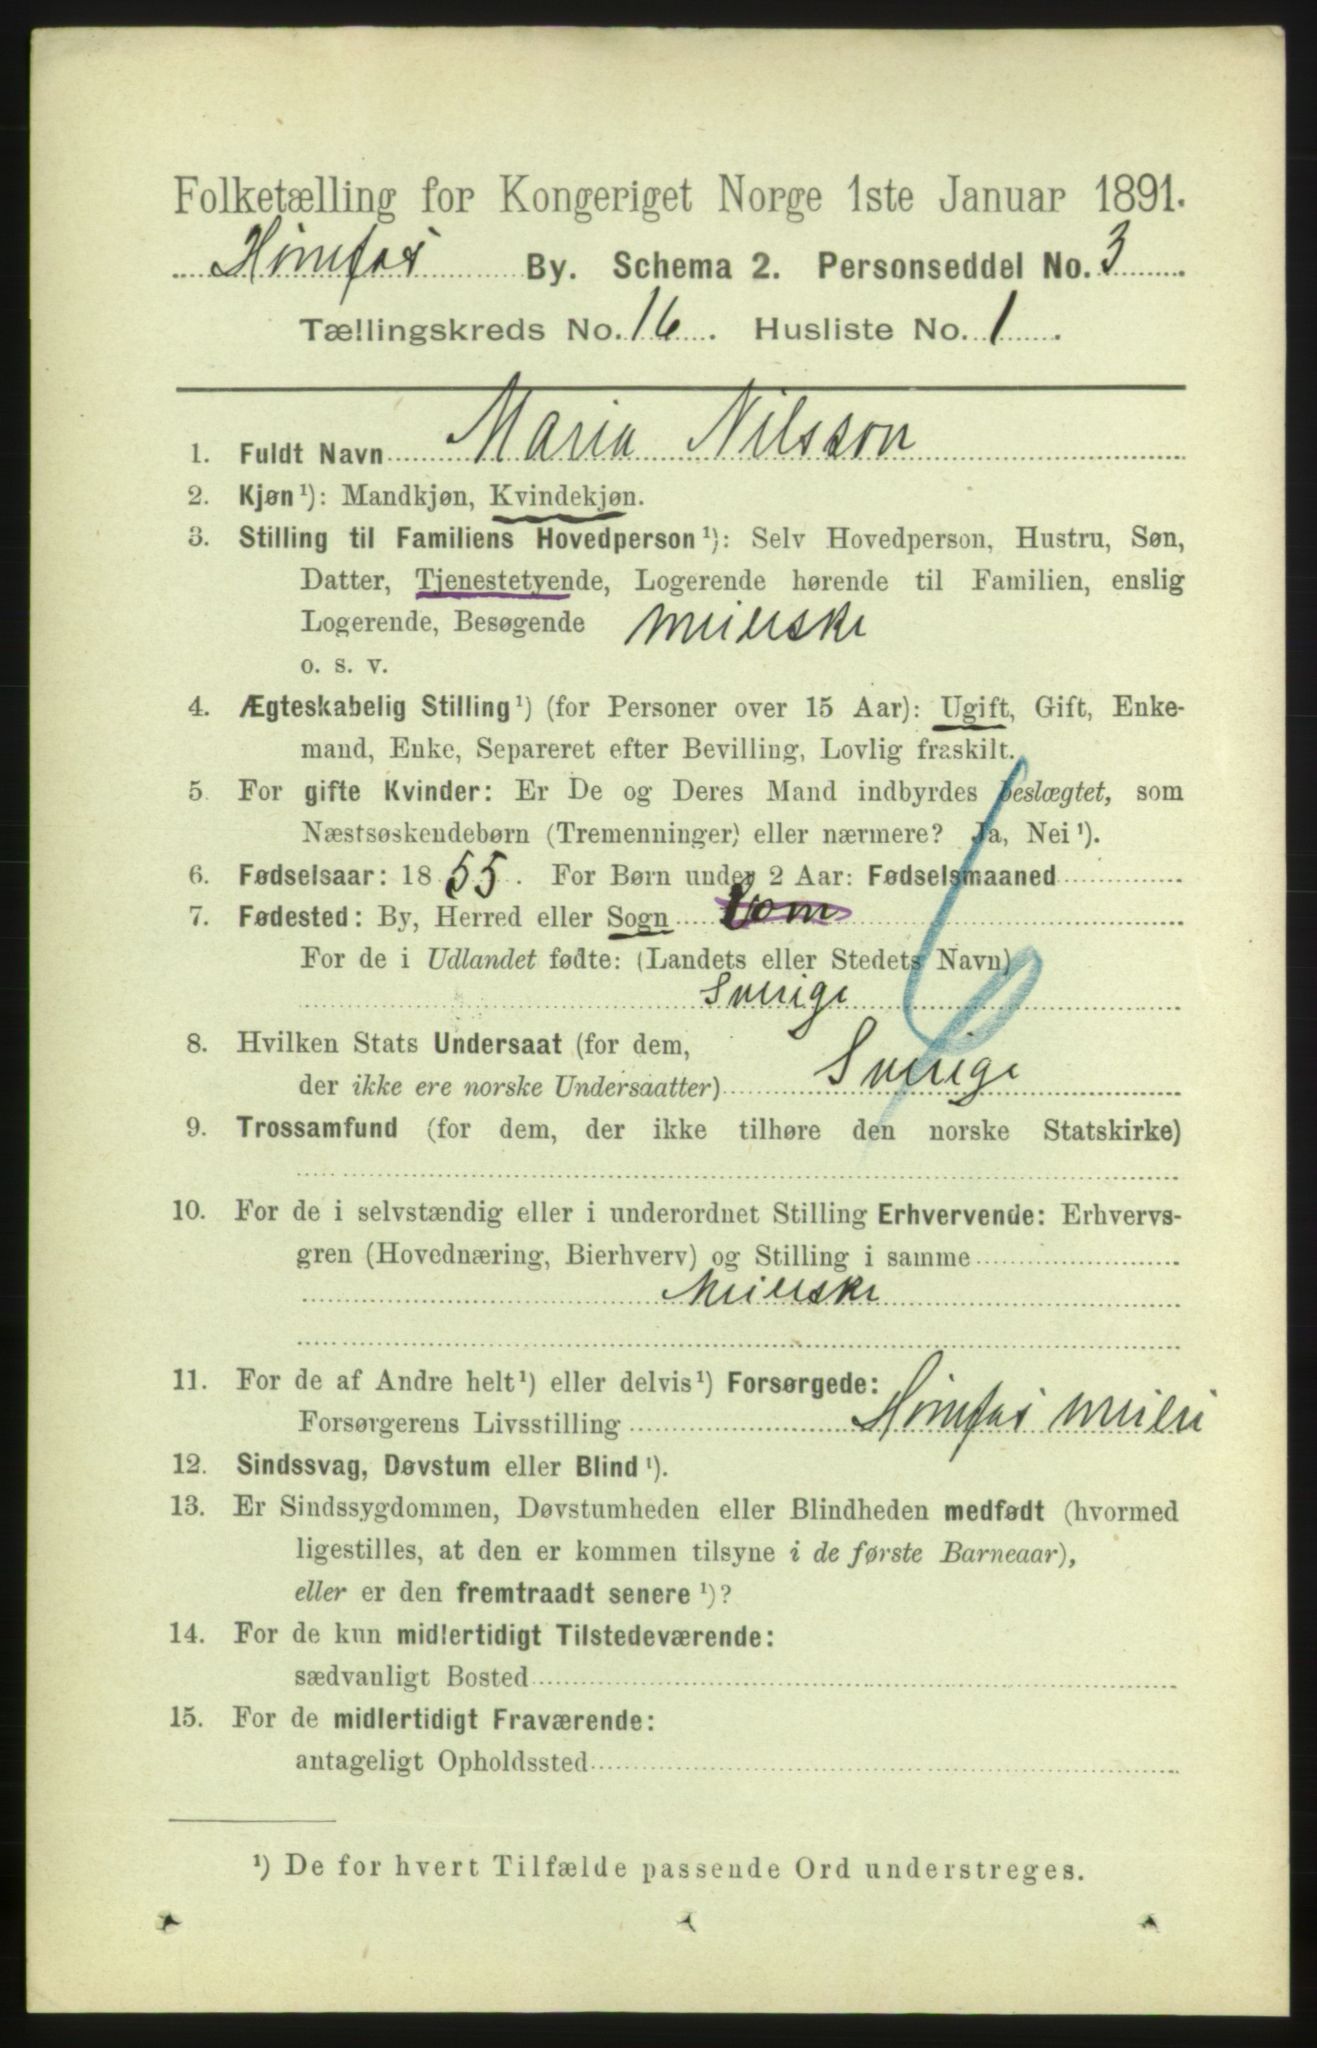 Folketælling for Kongeriget Norge 1ste Januar 1891.
Hønefos By. Schema 2. Personseddel No. 3
Tællingskreds No. 16. Husliste No. 1.
1. Fuldt Navn Maria Nilsson
2. Kjøn ¹): Mandkjøn, Kvindekjøn.
3. Stilling til Familiens Hovedperson ¹): Selv Hovedperson, Hustru, Søn,
Datter, Tjenestetyende, Logerende hørende til Familien, enslig
Logerende, Besøgende Meierske
o. s. v.
4. Ægteskabelig Stilling ¹) (for Personer over 15 Aar): Ugift, Gift, Enke-
mand, Enke, Separeret efter Bevilling, Lovlig fraskilt.
5. For gifte Kvinder: Er De og Deres Mand indbyrdes beslægtet, som
Næstsøskendebørn (Tremenninger) eller nærmere? Ja, Nei ¹).
6. Fødselsaar: 1855. For Børn under 2 Aar: Fødselsmaaned
7. Fødested: By, Herred eller Sogn
For de i Udlandet fødte: (Landets eller Stedets Navn)
Sverige
8. Hvilken Stats Undersaat (for dem,
der ikke ere norske Undersaatter) Sverige
9. Trossamfund (for dem, der ikke tilhøre den norske Statskirke)
10. For de i selvstændig eller i underordnet Stilling Erhvervende: Erhvervs-
gren (Hovednæring, Bierhverv) og Stilling i samme
Meierske
11. For de af Andre helt ¹) eller delvis ¹) Forsørgede:
Forsørgerens Livsstilling Hønefos Meieri
12. Sindssvag, Døvstum eller Blind ¹).
13. Er Sindssygdommen, Døvstumheden eller Blindheden medfødt (hvormed
ligestilles, at den er kommen tilsyne i de første Barneaar),
eller er den fremtraadt senere ¹)?
14. For de kun midlertidigt Tilstedeværende:
sædvanligt Bosted
15. For de midlertidigt Fraværende:
antageligt Opholdssted
¹) De for hvert Tilfælde passende Ord understreges.